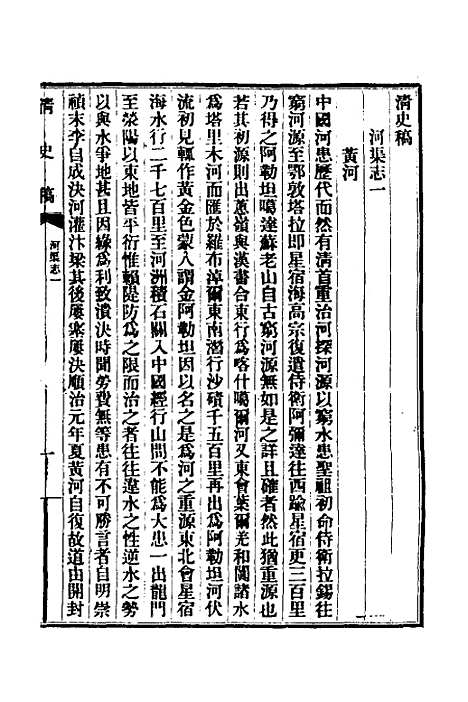 清史稿
河渠志一
黃河
中國河患歷代而然有清首重治河探河源以窮水患聖祖初命侍衛拉錫往
窮河源至鄂敦塔拉卽星宿海高宗復遣侍衛阿彌達往西踰星宿更三百里
乃得之阿勒坦噶達蘇老山自古窮河源無如是之詳且確者然此猶重源也
若其初源則出蔥嶺與漢書合東行爲喀什噶爾河又東會葉爾羌和闐諸水
爲塔里木河而匯於羅布淖爾東南潛行沙磧千五百里再出爲阿勒坦河伏
流初見輒作黃金色蒙人謂金阿勒坦因以名之是爲河之重源東北會星宿
海水行二千七百里至河洲積石關入中國經行山間不能爲大患一出龍門
至滎陽以東地皆平衍惟賴隄防爲之限而治之者往往違水之性逆水之勢
以與水爭地甚且因緣爲利致潰決時聞勞費無等患有不可勝言者自明崇
禎末李自成決河灌汴梁其後屢塞屢決順治元年夏黃河自復故道由開封
清史稿
河渠志一
一